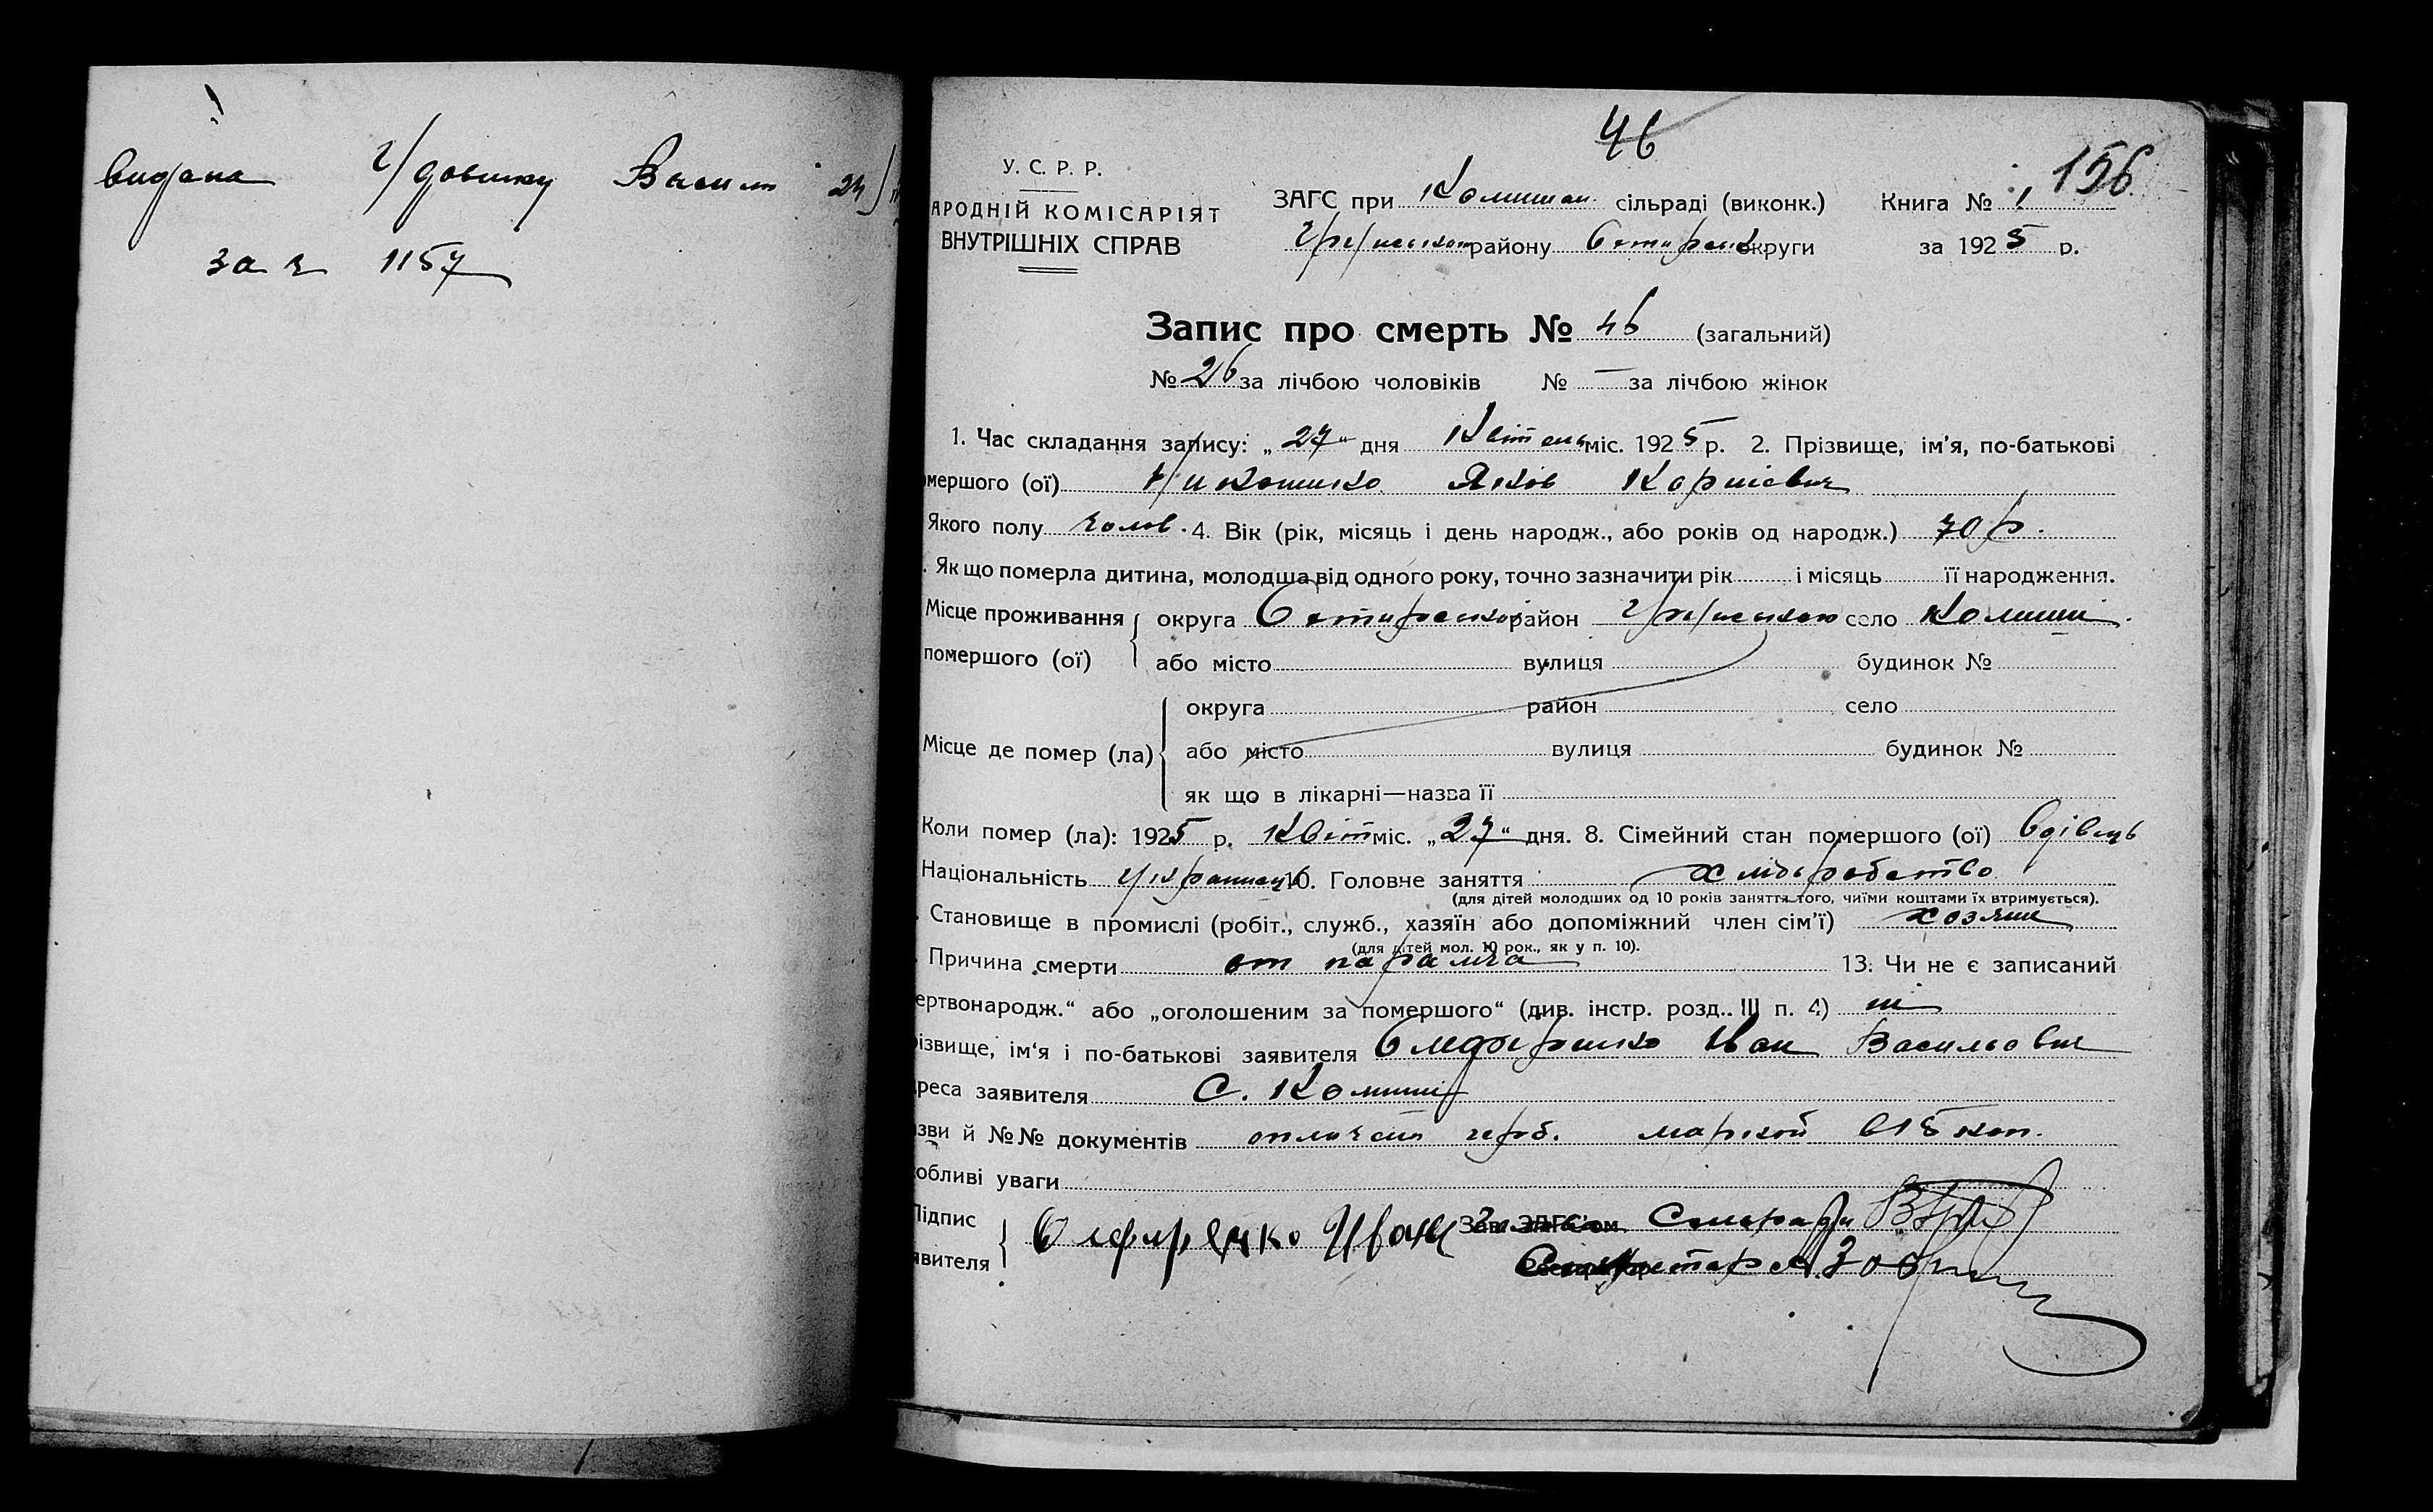 видана Удовику Васил 24
за № 1157
46
156
У. С. Р. Р.
АРОДНІЙ КОМІСАРІЯТ
ВНУТРІШНІХ СПРАВ
ЗАГС при Комишан сільраді (виконк.) Книга № 1
району округи за 1925 р.
Запис про смерть № 46 (загальний)
№ 26 за лічбою чоловіків № — за лічбою жінок
1. Час складання запису: „27“ дня Квітень міс. 1925 р. 2. Прізвище, ім'я, по-батькові
мершого (ої) Яков Корнієвич
Якого полу чолов. 4. Вік (рік, місяць і день народж., або років од народж.) 70 р.
. Як що померла дитина, молодша від одного року, точно зазначити рік і місяць її народження.
Місце проживання помершого (ої) округа район село Комиші
або місто вулиця будинок №
Місце де помер (ла) округа район село
або місто вулиця будинок №
як що в лікарні—назва її
Коли помер (ла): 1925 р. Квіт міс. „27“ дня. 8. Сімейний стан помершого (ої) Вдівець
Національність Українець 10. Головне заняття хліборобство
(для дітей молодших од 10 років заняття того, чиїми коштами їх втримується).
. Становище в промислі (робіт., служб., хазяїн або допоміжний член сім'ї) хозяин
(для дітей мол. 10 рок., як у п. 10).
. Причина смерти от паралича 13. Чи не є записаний
ертвонародж.“ або „оголошеним за помершого“ (див. інстр. розд.. III п. 4) ні
ізвище, ім'я і по-батькові заявителя Олефиренко Иван Васильович
реса заявителя С. Комиші
зви й №№ документів оплачен герб. маркой в 15 коп.
обливі уваги
Підпис
явителя Олефиренко Иван Зав. ЗАГС'ом Сільради
Секретар